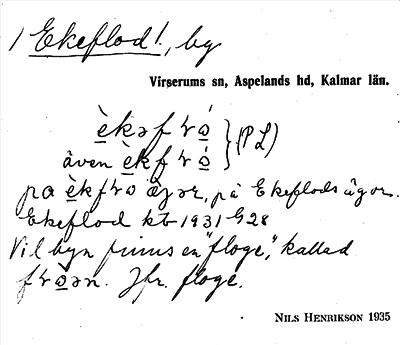 1 Ekeflod!, by
Virserums sn, Aspelands hd, Kalmar län.
èkəfɫɷ́ } (PL)
även èkfɫɷ́
pa èkfɫɷ ägər, på Ekeflods ägor.
Ekeflod kb 1931 G28
Vil byn finns en "floge", kallad
fɫɷən. Jfr. floge.
NILS HENRIKSON 1935